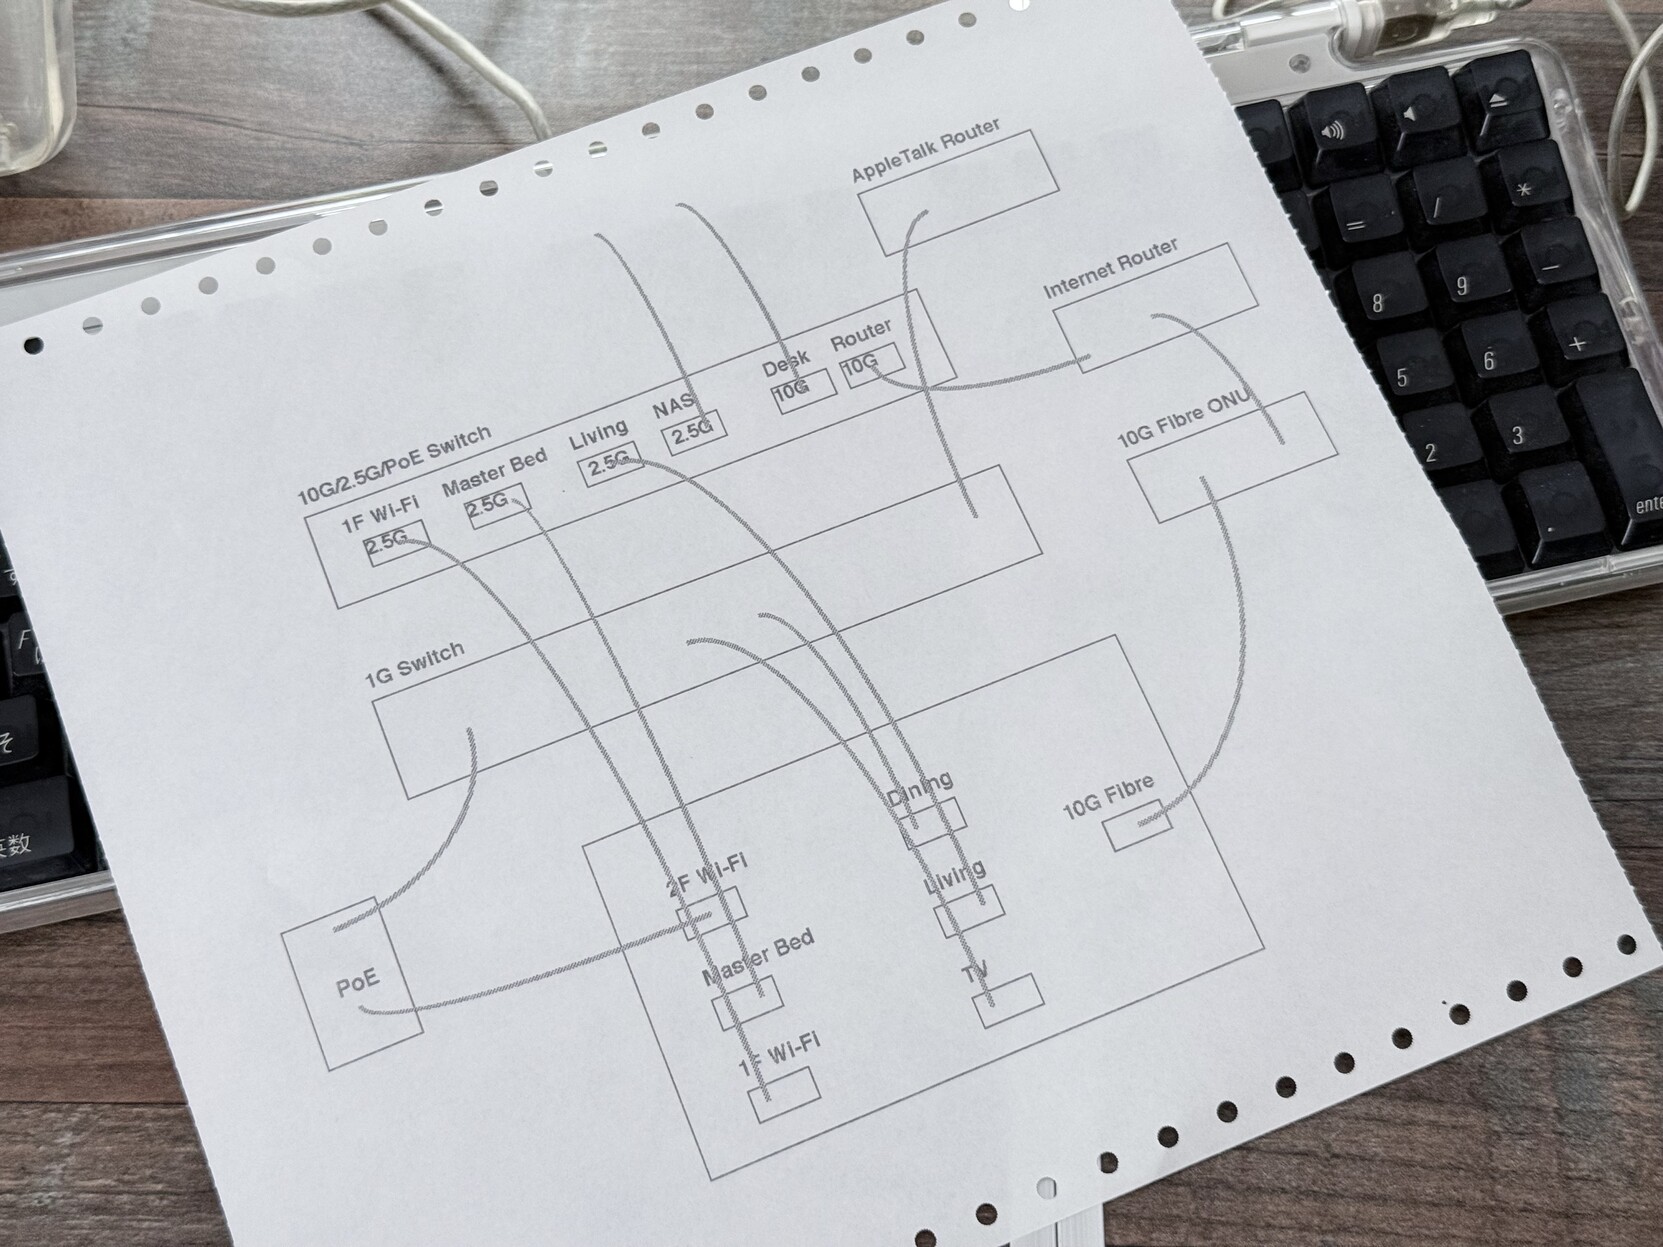 AppleTalk Router
Internet Router
10G Fibre ONU
10G/2.5G/PoE Switch
1F Wi-Fi
2.5G
Master Bed
2.5G
Living
2.5G
NAS
2.5G
Desk
10G
Router
10G
1G Switch
PoE
2F Wi-Fi
Master Bed
1F Wi-Fi
Dining
Living
TV
10G Fibre
=
/
*
8
9
−
5
6
+
2
3
.
そ
英数